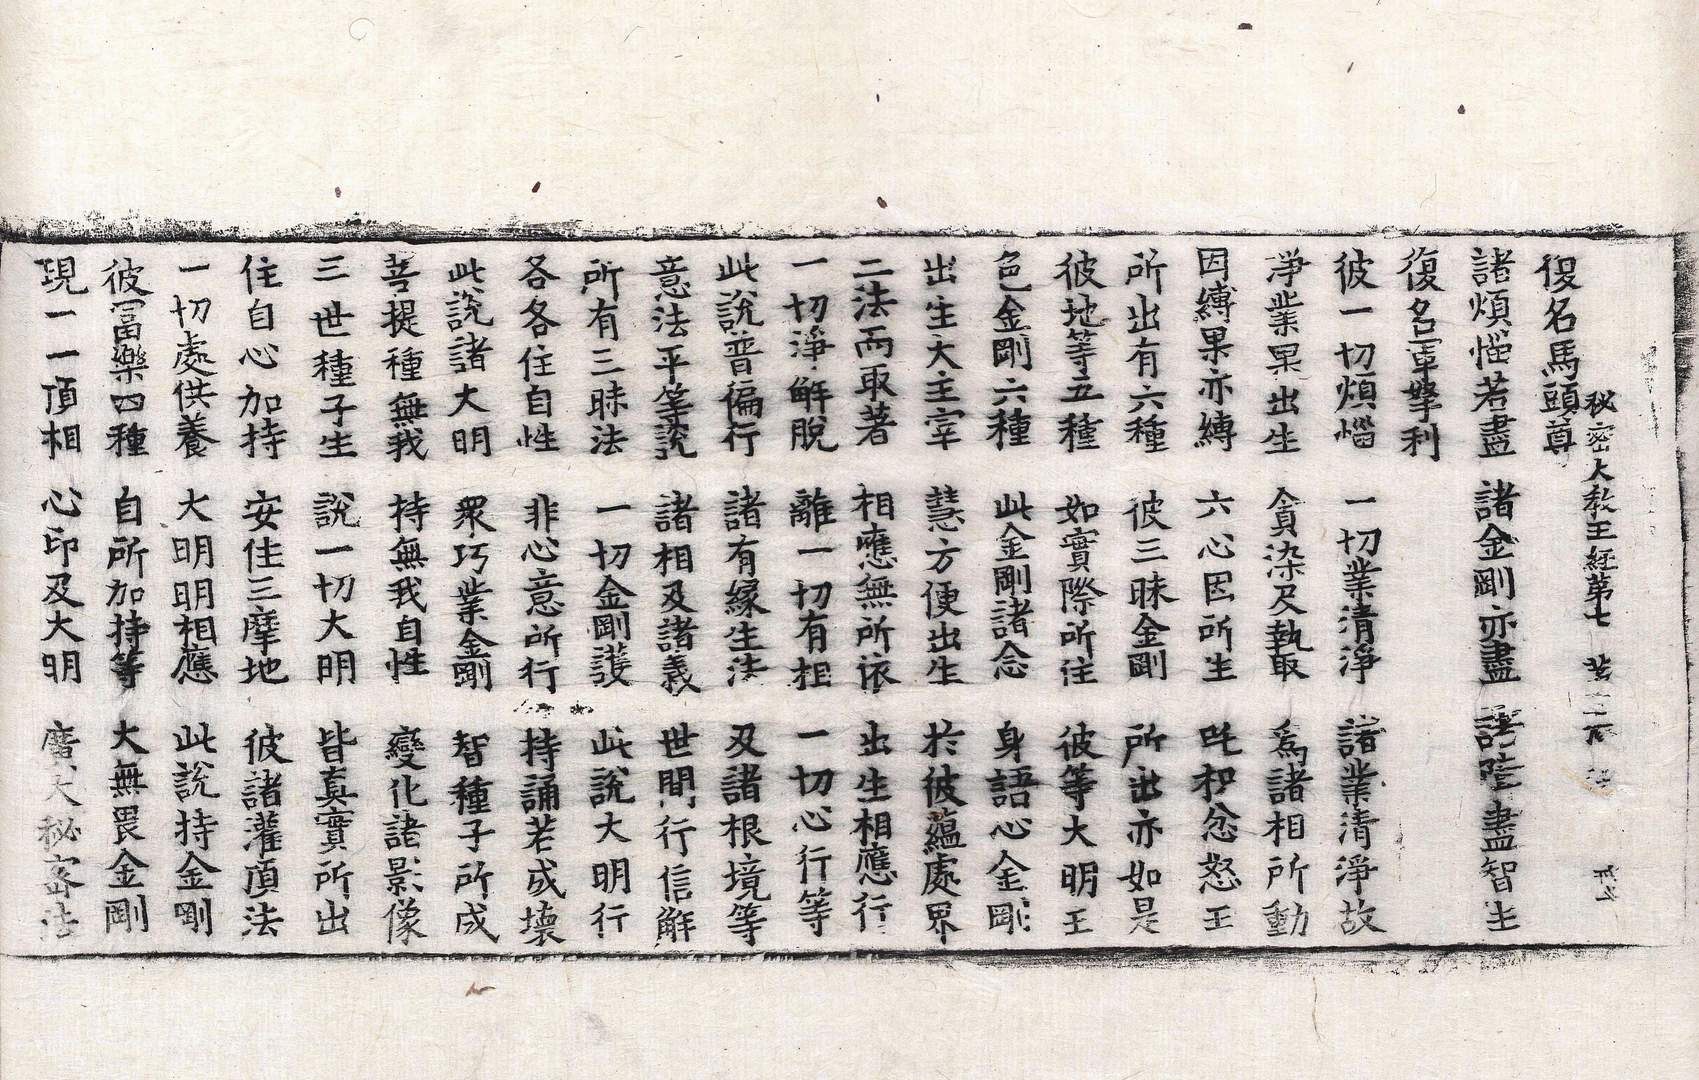 秘密大教王經第七
復名馬頭尊
諸煩惱若盡 諸金剛亦盡 諸障盡智生
復名軍拏利
彼一切煩惱 一切業清淨 諸業清淨故
淨業果出生 貪染及執取 爲諸相所動
因縛果亦縛 六心因所生 吒枳忿怒王
所出有六種 彼三昧金剛 所出亦如是
彼地等五種 如實際所住 彼等大明王
色金剛六種 此金剛諸念 身語心金剛
出生大主宰 慧方便出生 於彼蘊處界
二法而取著 相應無所依 出生相應行
一切淨解脫 離一切有相 一切心行等
此說普徧行 諸有緣生法 及諸根境等
意法平等說 諸相及諸義 世間行信解
所有三昧法 一切金剛護 此說大明行
各各住自性 非心意所行 持誦若成壞
此說諸大明 衆巧業金剛 智種子所成
菩提種無我 持無我自性 變化諸影像
三世種子生 說一切大明 皆真實所出
住自心加持 安住三摩地 彼諸灌頂法
一切處供養 大明明相應 此說持金剛
彼冨樂四種 自所加持等 大無畏金剛
現一一頂相 心印及大明 廣大秘密法